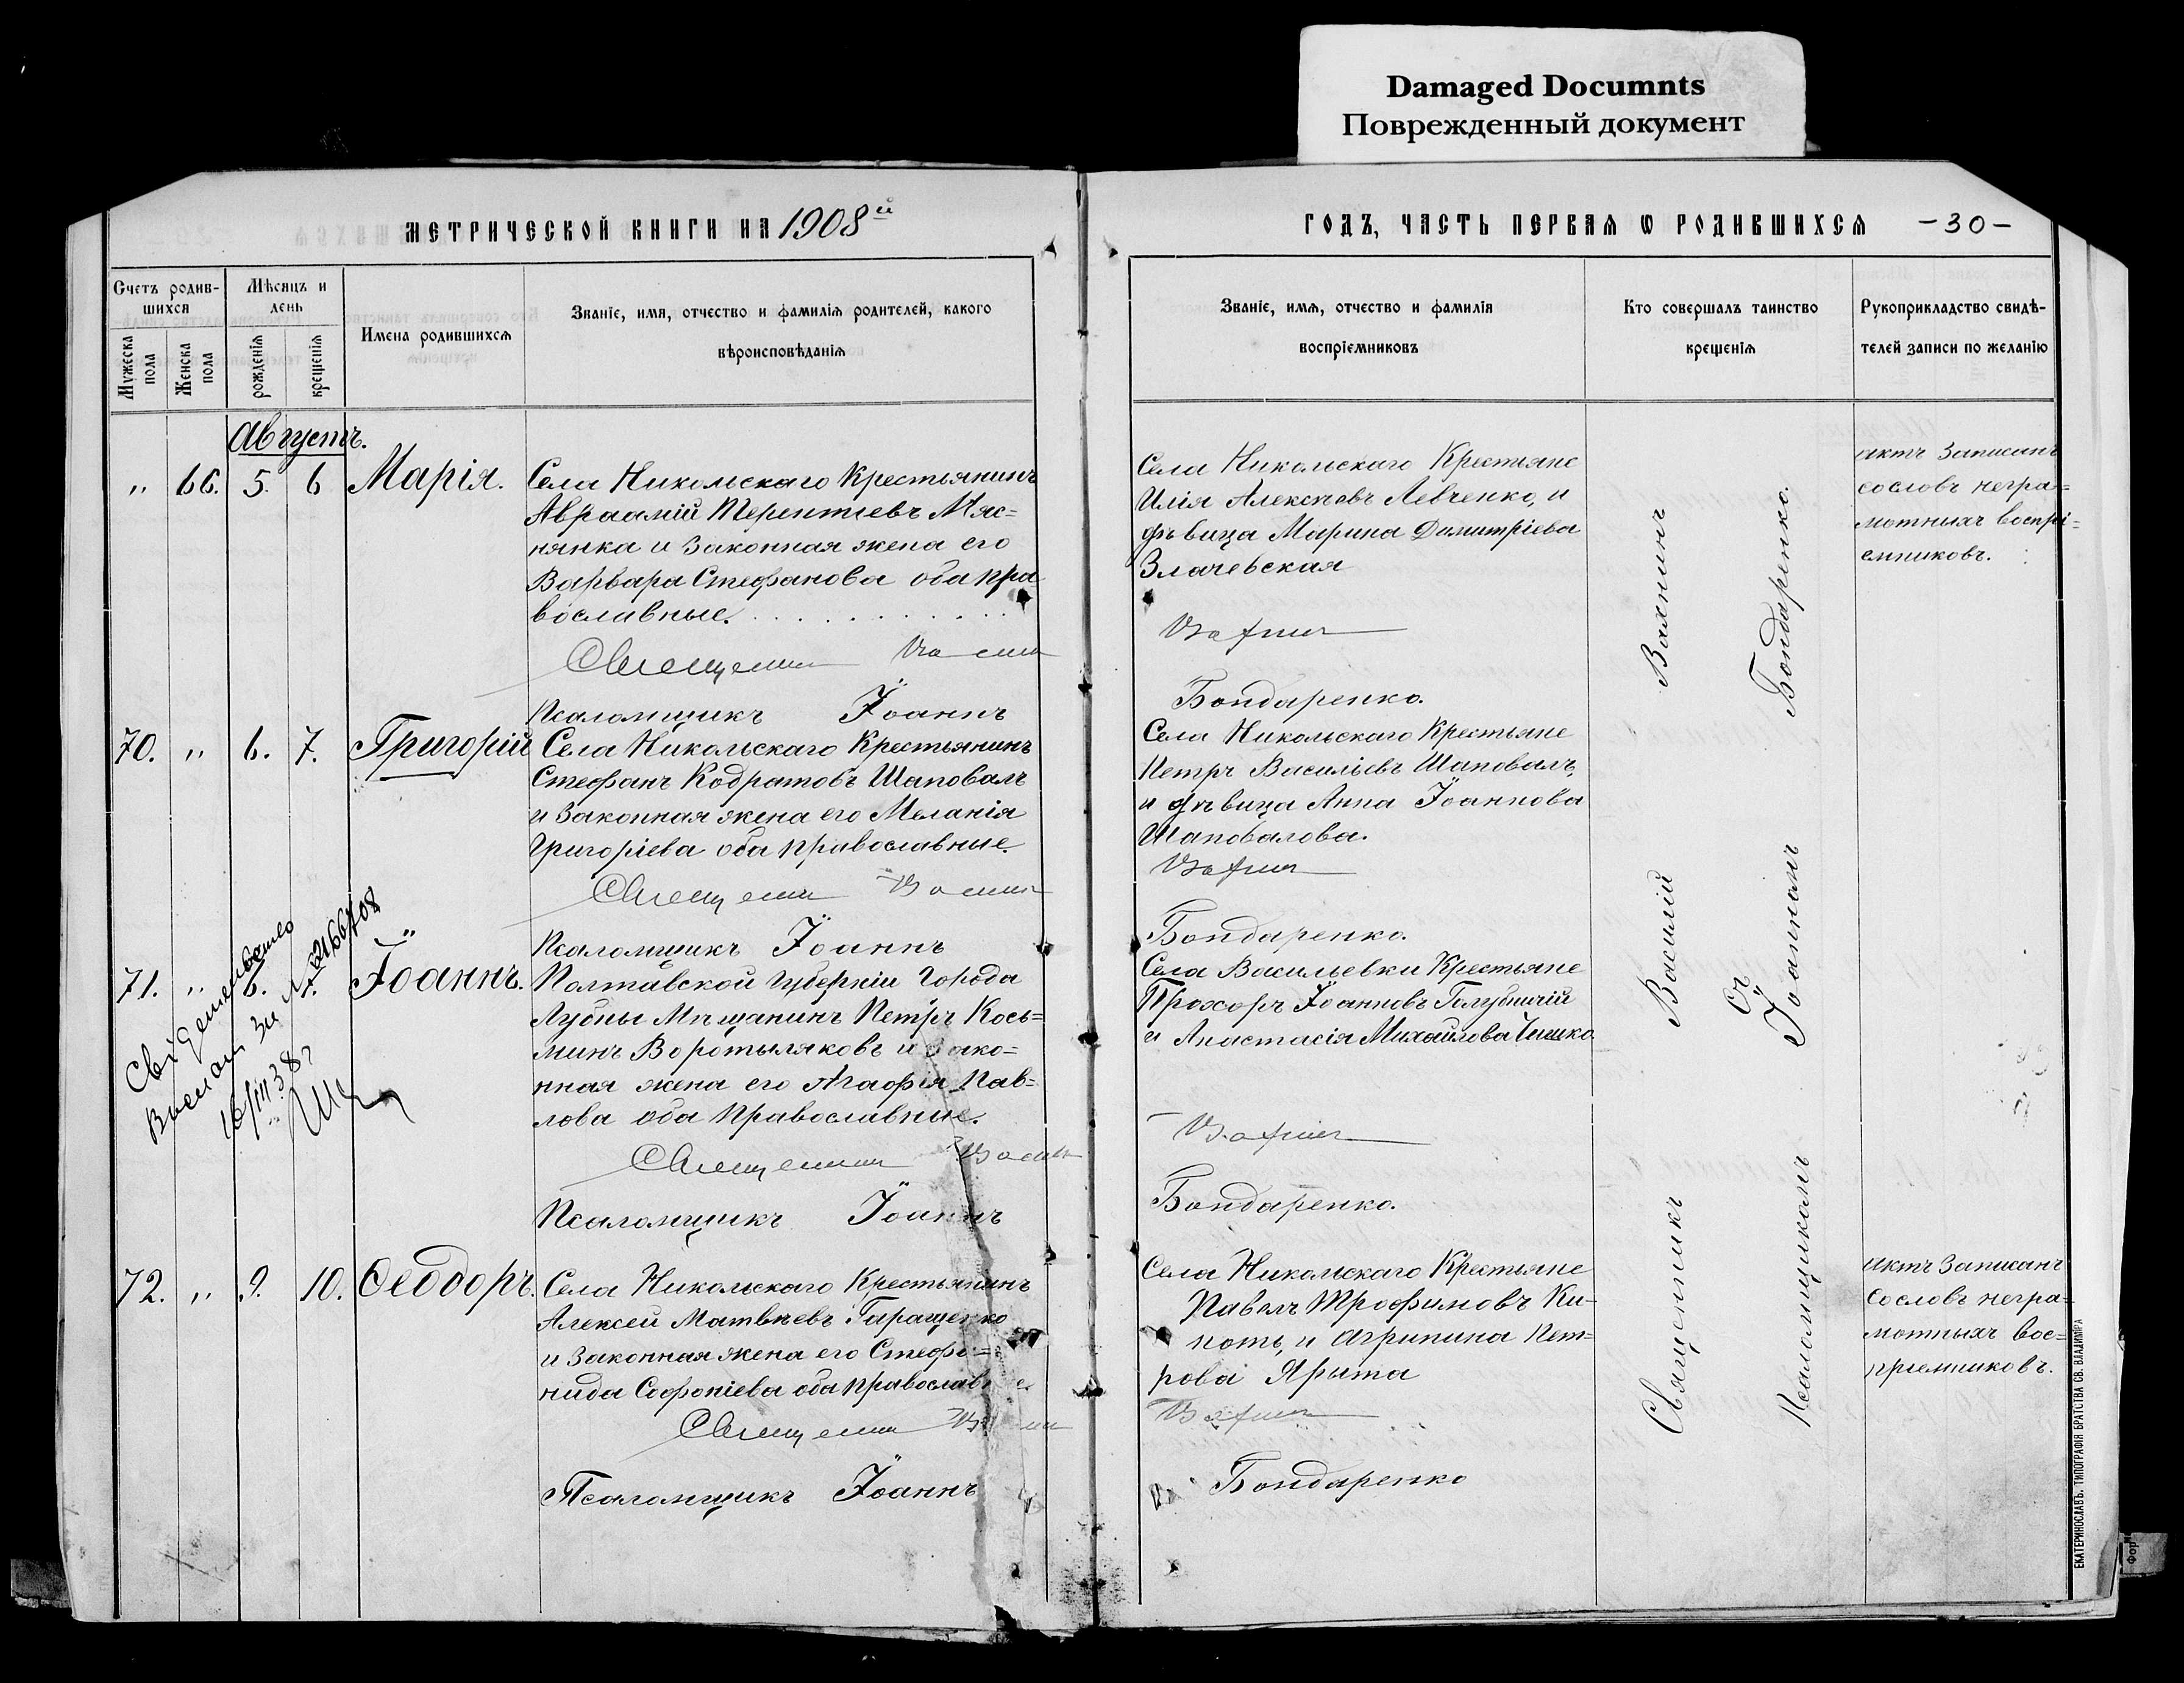 Damaged Documnts
Поврежденный документ
МЕТРИЧЕСКОЙ КНИГИ НА 1908й
ГОДЪ, ЧАСТЬ ПЕРВАЯ Ѡ РОДИВШИХСЯ
-30-
Счетъ родив-
шихся
Мужеска
пола
Женска
пола
Мѣсяцъ и
день
рожденія
крещенія
Имена родившихся
Званіе, имя, отчество и фамилія родителей, какого
вѣроисповѣданія
Званіе, имя, отчество и фамилія
воспріемниковъ
Кто совершалъ таинство
крещенія
Рукоприкладство свидѣ-
телей записи по желанію
Августъ.
„ 66. 5. 6 Марія.
Села Никольскаго Крестьянинъ
Авраамій Терентіевъ Мяс=
нянка и законная жена его
Варвара Стефанова оба пра
вославные.
Псаломщикъ Іоаннъ
Села Никольскаго Крестьяне
Илія Алексѣевъ Левченко, и
дѣвица Марина Димитріева
Злачевская
Бондаренко.
актъ записанъ
со словъ негра=
мотныхъ воспрі=
емниковъ.
70. „ 6. 7. Григорій
Села Никольскаго Крестьянинъ
Стефанъ Кодратовъ Шаповалъ
и законная жена его Меланія
Григоріева оба православные.
Псаломщикъ Іоаннъ
Села Никольскаго Крестьяне
Петръ Василіевъ Шаповалъ,
и дѣвица Анна Іоаннова
Шаповалова.
Бондаренко.
71. „ 6. 7. Іоаннъ.
Свидетельство
Выслан за № 2166/108
16/III 38 г
Полтавской губерніи города
Лубны Мѣщанинъ Петръ Кось=
минъ Воротыляковъ и Зако=
нная жена его Агафія Пав=
лова оба православные.
Псаломщикъ Іоаннъ
Села Васильевки Крестьяне
Прохоръ Іоанновъ Голубничій
и Анастасія Михаилова Чишко.
Бондаренко.
72. „ 9. 10. Ѳеодоръ.
Села Никольскаго Крестьянинъ
Алексей Матвѣевъ Таращенко
и законная жена его Стефа=
нида Софоніева оба православ е.
Псаломщикъ Іоаннъ
Села Никольскаго Крестьяне
Павелъ Трофимовъ Ки-
поть, и Агрипина Пет=
рова Ярыта
Бондаренко
актъ записанъ
со словъ негра=
мотныхъ вос=
пріемниковъ.
Священникъ Василій Вахнинъ
Псаломщикомъ Іоанномъ Бондаренко.
съ
ЕКАТЕРИНОСЛАВЪ. ТИПОГРАФІЯ БРАТСТВА СВ. ВЛАДИМІРА